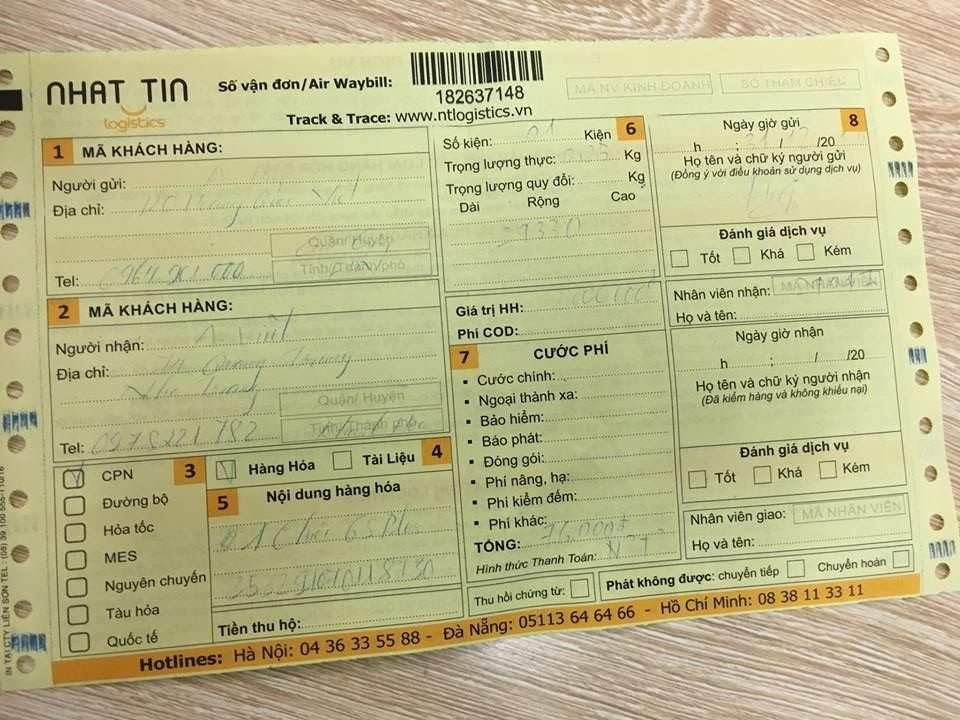 NHAT TIN
logistics
Số vận đơn/Air Waybill:
182637148
Track & Trace: www.ntlogistics.vn
MÃ NV KINH DOANH
SỐ THAM CHIẾU
1 MÃ KHÁCH HÀNG:
Người gửi:
Địa chỉ:
Quận/ Huyện
Tỉnh/Thành phố
Tel:
2 MÃ KHÁCH HÀNG:
Người nhận:
Địa chỉ: Quang Trung
Quận/ Huyện
Tỉnh/Thành phố
Tel: 0978221782
3
CPN
Đường bộ
Hỏa tốc
MES
Nguyên chuyến
Tàu hỏa
Quốc tế
Hàng Hóa Tài Liệu 4
5 Nội dung hàng hóa
Tiền thu hộ:
Số kiện: 01 Kiện 6
Trọng lượng thực: Kg
Trọng lượng quy đổi: Kg
Dài Rộng Cao
Giá trị HH:
Phí COD:
7 CƯỚC PHÍ
Cước chính:
Ngoại thành xa:
Bảo hiểm:
Báo phát:
Đóng gói:
Phí nâng, hạ:
Phí kiểm đếm:
Phí khác:
TỔNG: 76,000đ
Hình thức Thanh Toán:
Thu hồi chứng từ:
Ngày giờ gửi 8
h : / /20
Họ tên và chữ ký người gửi
(Đồng ý với điều khoản sử dụng dịch vụ)
Đánh giá dịch vụ
Tốt Khá Kém
Nhân viên nhận: MÃ NHÂN VIÊN
Họ và tên:
Ngày giờ nhận
h : / /20
Họ tên và chữ ký người nhận
(Đã kiểm hàng và không khiếu nại)
Đánh giá dịch vụ
Tốt Khá Kém
Nhân viên giao: MÃ NHÂN VIÊN
Họ và tên:
Phát không được: chuyển tiếp Chuyển hoàn
Hotlines: Hà Nội: 04 36 33 55 88 - Đà Nẵng: 05113 64 64 66 - Hồ Chí Minh: 08 38 11 33 11